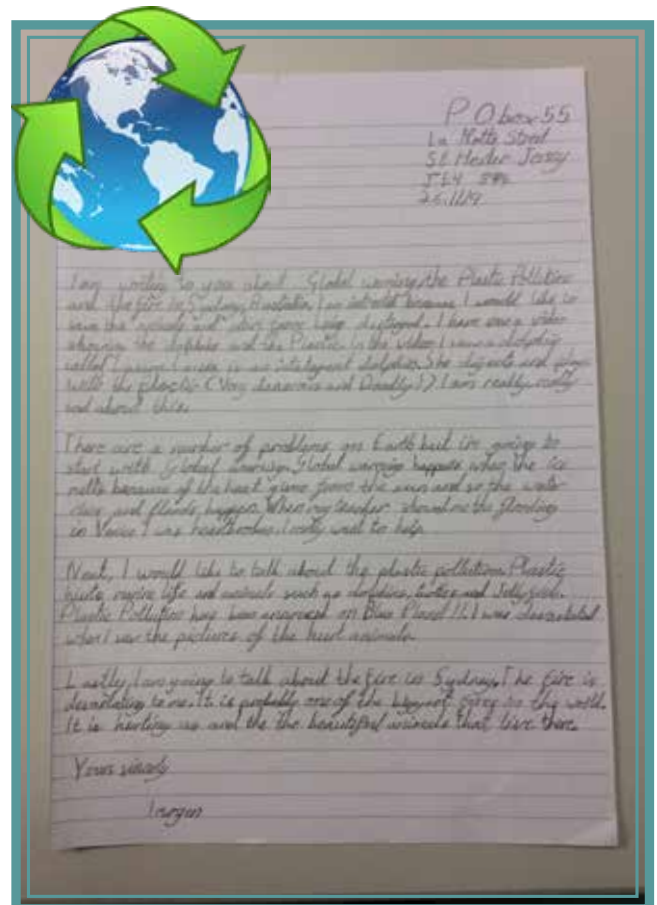 P O box 55
La Motte Street
St Helier Jersey
JE4
25.11.19
I am writing to you about Global warming, the Plastic Pollution
and the fire in Sydney, Australia. I am because I would like to
save the animals and being destroyed. I have seen a video
showing the dolphins and the Plastic. In the video I saw a dolphin
called is an intelligent dolphin. She digests and plays
with the plastic (Very dangerous and Deadly!!). I am really, really
sad about this.
There are a number of problems on Earth but im going to
start with Global warming. Global warming happens when the ice
melts because of the heat given from the sun and so the water
rises and floods happen. When my teacher showed me the flooding
in Venice I was heartbroken. I really want to help.
Next, I would like to talk about the plastic pollution. Plastic
hurts marine life and animals such as dolphins, turtles and Jelly fish.
Plastic Pollution has been on Blue Planet II. I was devastated
when I saw the pictures of the hurt animals.
Lastly, I am going to talk about the fire in Sydney. The fire is
devastating to me. It is probably one of the biggest fires in the world.
It is hurting us and the the beautiful animals that live there.
Yours